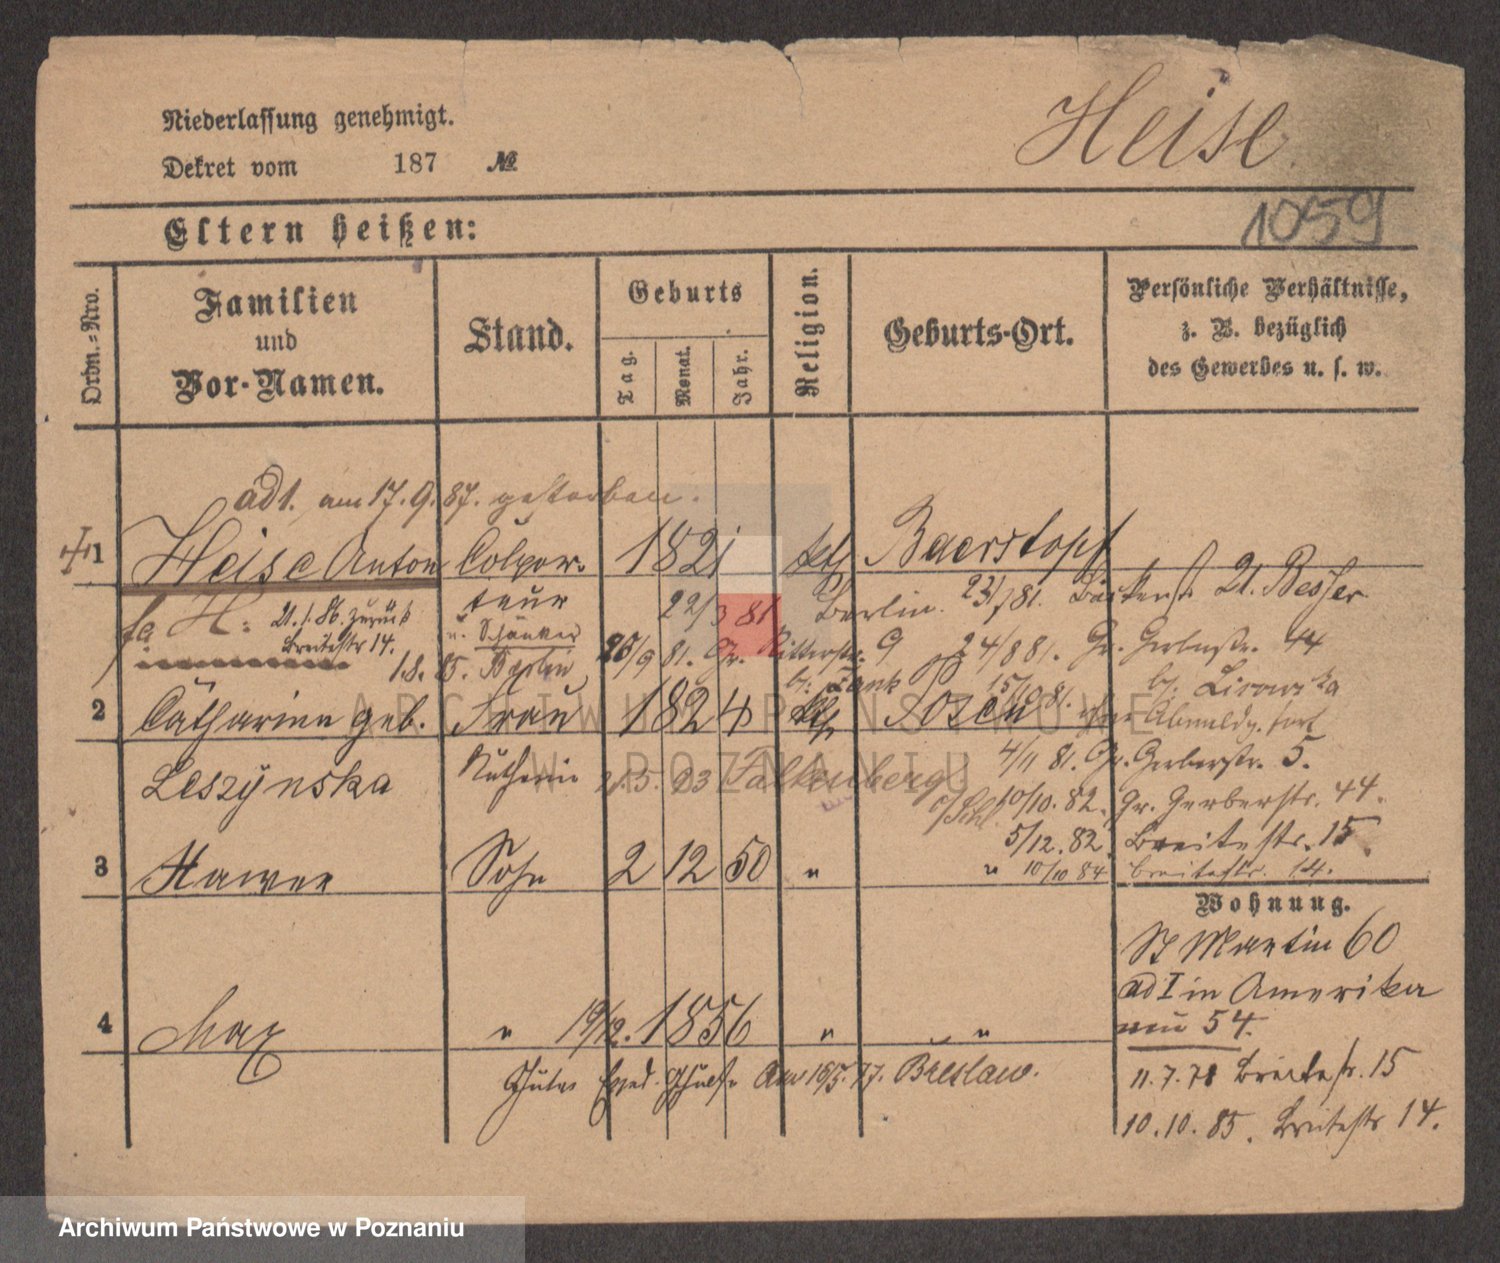 Niederlassung genehmigt.
Heise
Dekret vom 187 №
Eltern heißen:
1059
Ordn.-Nro.
Familien
und
Vor-Namen.
Stand.
Geburts
Tag.
Monat.
Jahr.
Religion.
Geburts-Ort.
Persönliche Verhältnisse,
z. B. bezüglich
des Gewerbes u. s. w.
ad 1. am 17. 9. 87. gestorben.
1 Heise Anton Colpor- 1821 kth Baerstopf
teur 22/3 81. Berlin. 23/7 81. Bäckerst 21. Besser
H: 21. 1. 86. zurück
Breitestr 14.
u. Schänker
20/9 81. Gr. Ritterstr. 9 24/8 81. Gr. Gerberstr. 44
1.8. 85. Berlin
b: Zank 15/10 81. b: Lisowska
2 Catharina geb. Frau 1824 kth Posen ohne Abmeldg. fort
Leszynska
21.5.03 Falkenberg
o/Schl.
4/11 81. Gr. Gerberstr. 5.
10/10. 82. Gr. Gerberstr. 44.
5/12. 82. Breitestr. 15
" 10/10 84 Breitestr. 14.
3 Xawer Sohn 2 12 50 "
Wohnung.
St Martin 60
ad I in Amerika
nun 54.
4 Max " 19/12. 1856 " "
Am 16/5. 77. Breslau.
11. 7. 71 Breitestr. 15
10. 10. 85. Breitestr 14.
ARCHIWUM PAŃSTWOWE
W POZNANIU
Archiwum Państwowe w Poznaniu